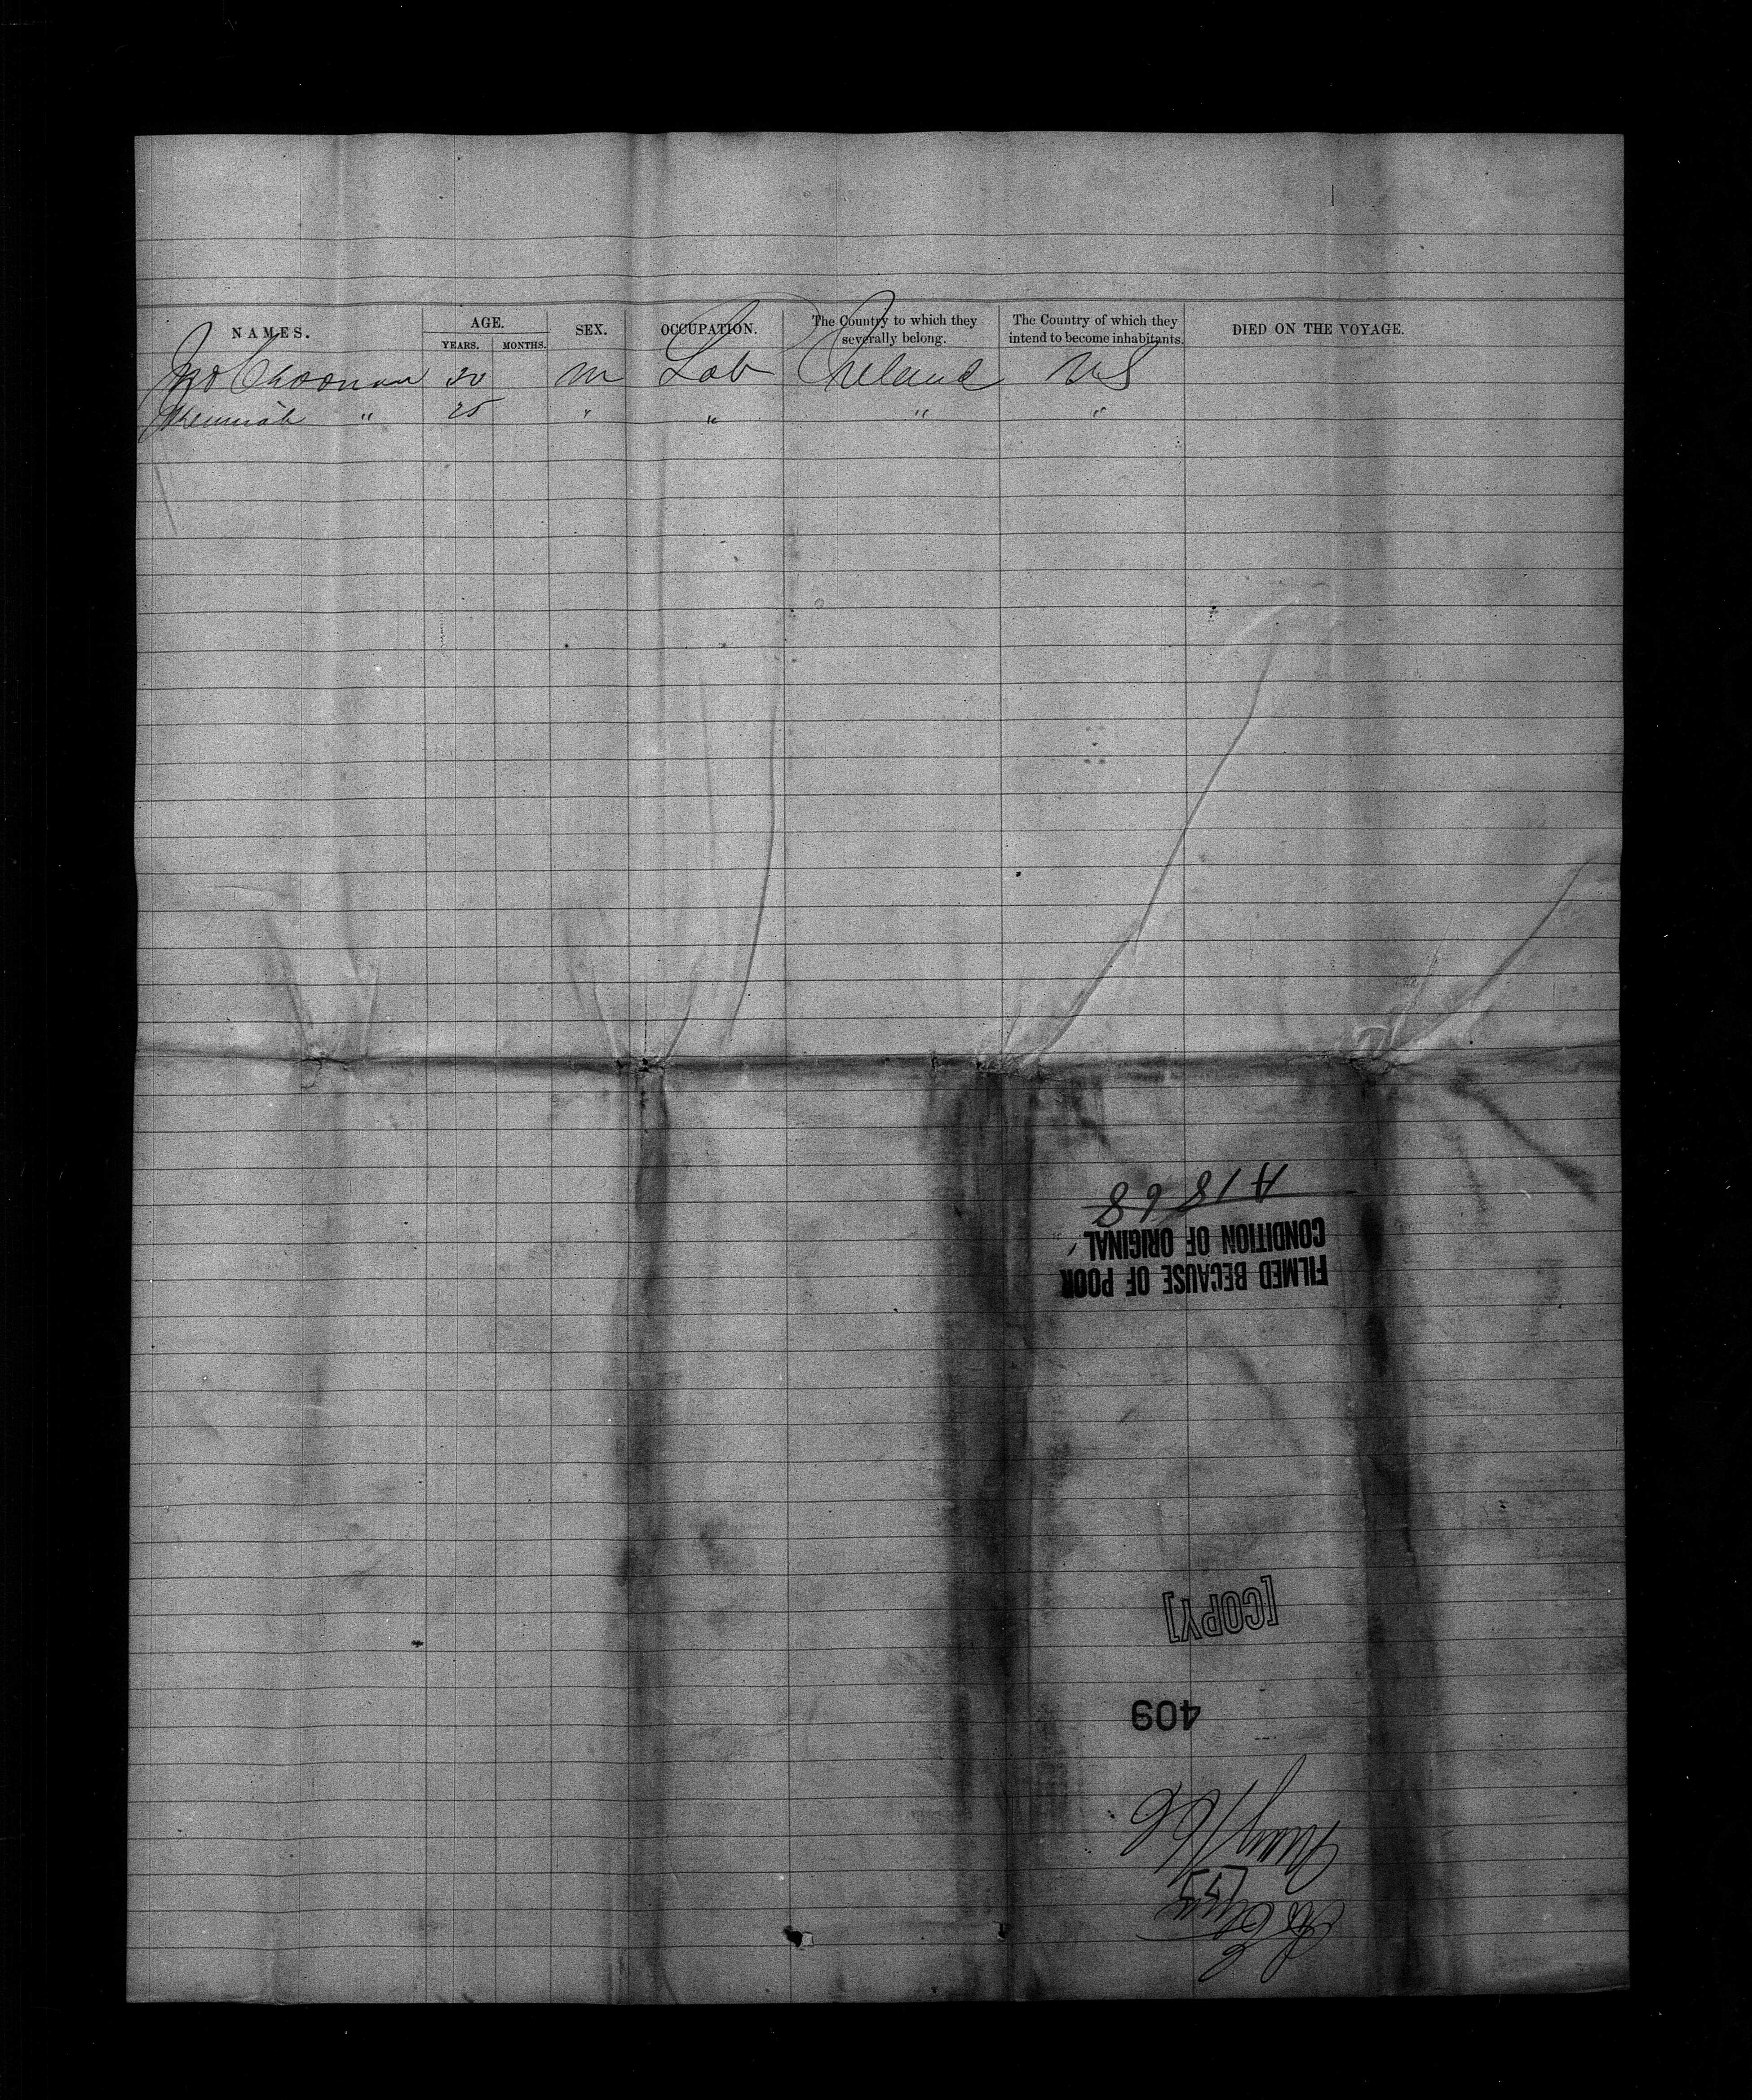 NAMES. AGE. SEX. OCCUPATION. The Country to which they severally belong. The Country of which they intend to become inhabitants. DIED ON THE VOYAGE.
YEARS. MONTHS.
Jno 20 m Lab Ireland US
Jeremiah " 25 " " " "
A1868
FILMED BECAUSE OF POOR
CONDITION OF ORIGINAL
[COPY]
409